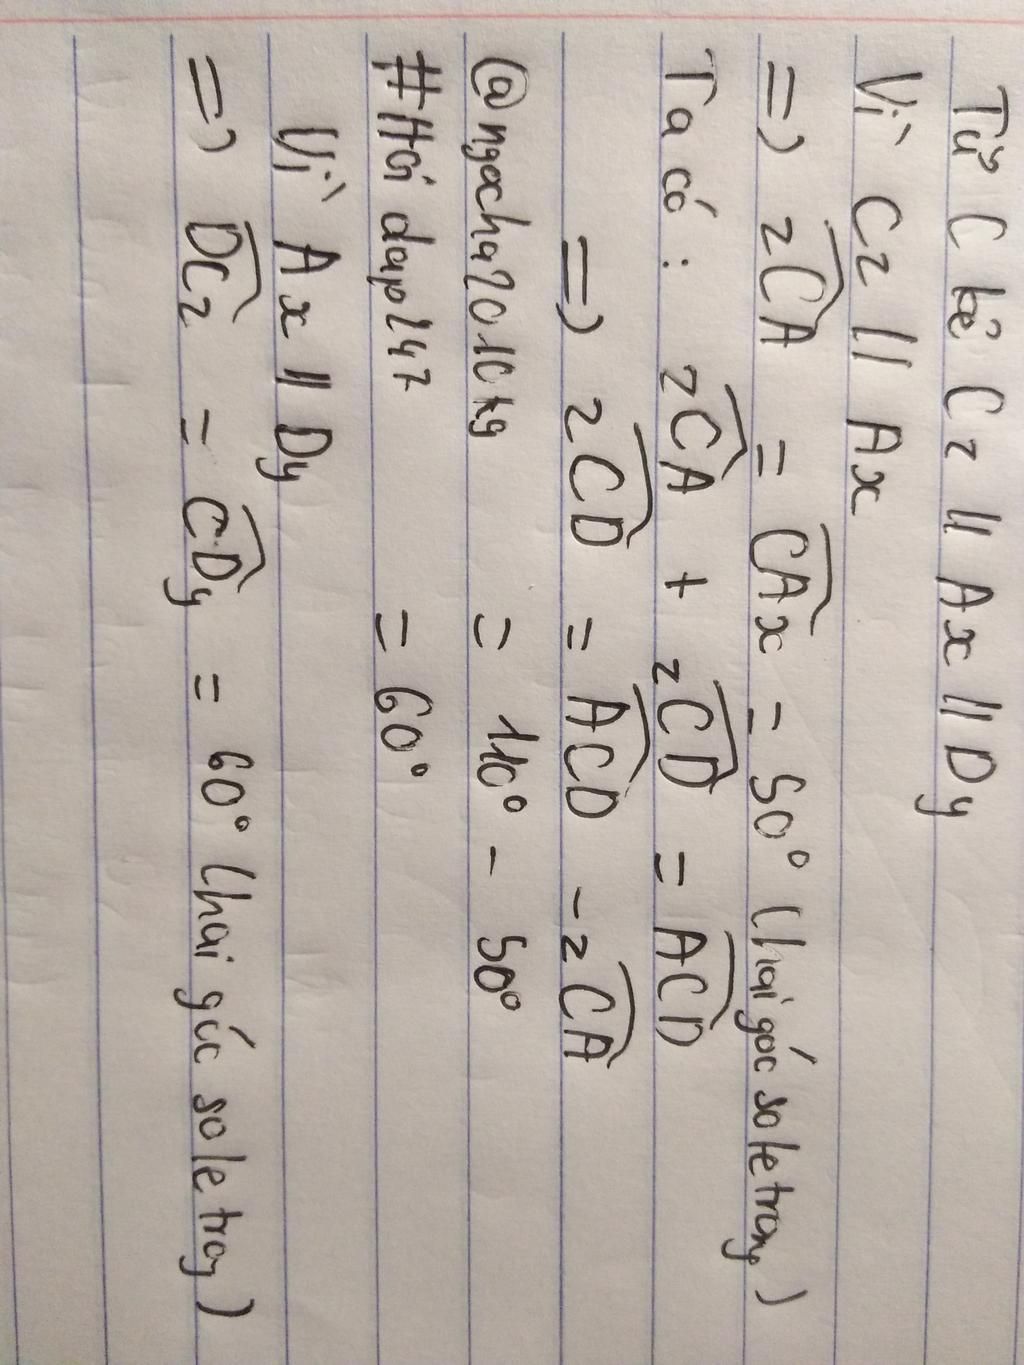 Từ C kẻ Cz // Ax // Dy
Vì Cz // Ax
=> zCA = CAx = 50° (hai góc so le trong)
Ta có: zCA + zCD = ACD
=> zCD = ACD - zCA
@ngocha2010kg = 110° - 50°
#Hỏi dap247 = 60°
Vì Ax // Dy
=> DCz = CDy = 60° (hai góc so le trong)